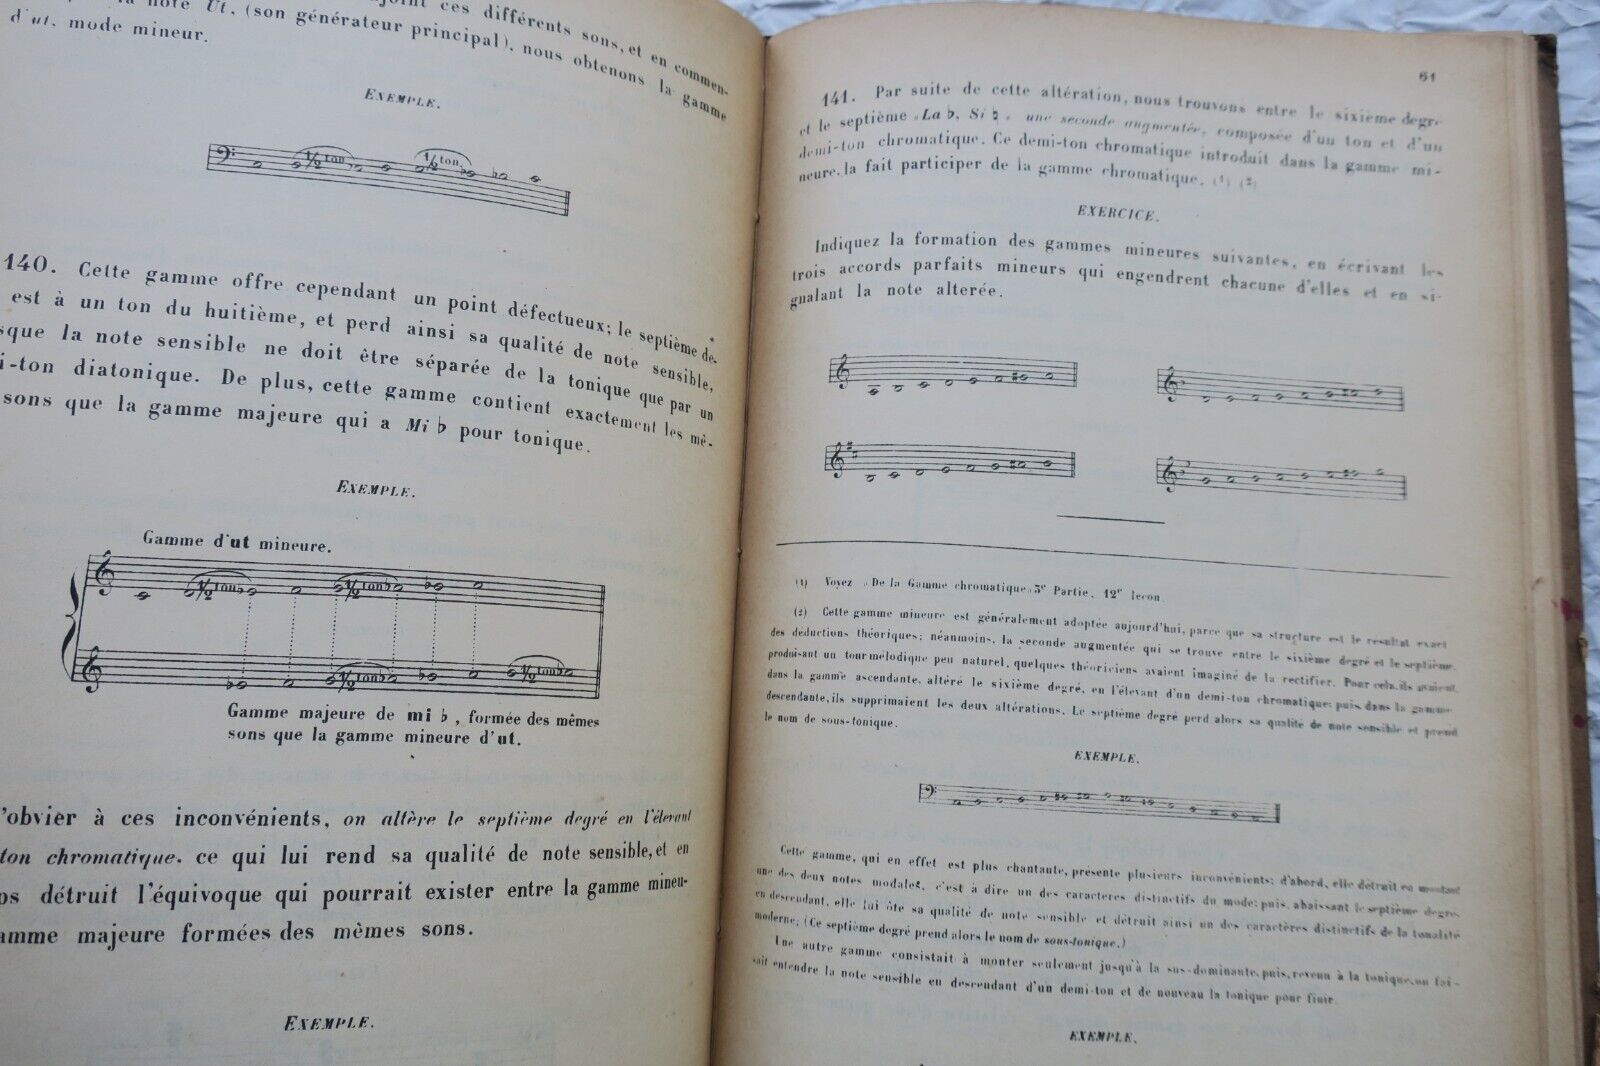 la note Ut. (son générateur principal), nous obtenons la gamme
ces différents sons, et en commen-
d'ut, mode mineur.
EXEMPLE.
1/2 ton
1/2 ton
140. Cette gamme offre cependant un point défectueux; le septième de-
est à un ton du huitième, et perd ainsi sa qualité de note sensible,
sque la note sensible ne doit être séparée de la tonique que par un
i-ton diatonique. De plus, cette gamme contient exactement les mê-
sons que la gamme majeure qui a Mi ♭ pour tonique.
EXEMPLE.
Gamme d'ut mineure.
1/2 ton
1/2 ton
1/2 ton
1/2 ton
Gamme majeure de mi ♭, formée des mêmes
sons que la gamme mineure d'ut.
'obvier à ces inconvénients, on altère le septième degré en l'élevant
ton chromatique, ce qui lui rend sa qualité de note sensible, et en
ps détruit l'équivoque qui pourrait exister entre la gamme mineu-
amme majeure formées des mêmes sons.
EXEMPLE.
61
141. Par suite de cette altération, nous trouvons entre le sixième degré
et le septième «La ♭, Si ♮» une seconde augmentée, composée d'un ton et d'un
demi-ton chromatique. Ce demi-ton chromatique introduit dans la gamme mi-
neure, la fait participer de la gamme chromatique. (1) (2)
EXERCICE.
Indiquez la formation des gammes mineures suivantes, en écrivant les
trois accords parfaits mineurs qui engendrent chacune d'elles et en si-
gnalant la note alterée.
(1) Voyez «De la Gamme chromatique» 3e Partie, 12e leçon.
(2) Cette gamme mineure est généralement adoptée aujourd'hui, parce que sa structure est le résultat exact
des déductions théoriques; néanmoins, la seconde augmentée qui se trouve entre le sixième degré et le septième,
produisant un tour mélodique peu naturel, quelques théoriciens avaient imaginé de la rectifier. Pour cela, ils avaient,
dans la gamme ascendante, altéré le sixième degré, en l'élevant d'un demi-ton chromatique; puis, dans la gamme
descendante, ils supprimaient les deux altérations. Le septième degré perd alors sa qualité de note sensible et prend
le nom de sous-tonique.
EXEMPLE.
Cette gamme, qui en effet est plus chantante, présente plusieurs inconvénients: d'abord, elle détruit en montant
une des deux notes modales, c'est à dire un des caractères distinctifs du mode; puis, abaissant le septième degré
en descendant, elle lui ôte sa qualité de note sensible et détruit ainsi un des caractères distinctifs de la tonalité
moderne. (Ce septième degré prend alors le nom de sous-tonique.)
Une autre gamme consistait à monter seulement jusqu'à la sus-dominante, puis, revenu à la tonique, on fai-
sait entendre la note sensible en descendant d'un demi-ton et de nouveau la tonique pour finir.
EXEMPLE.